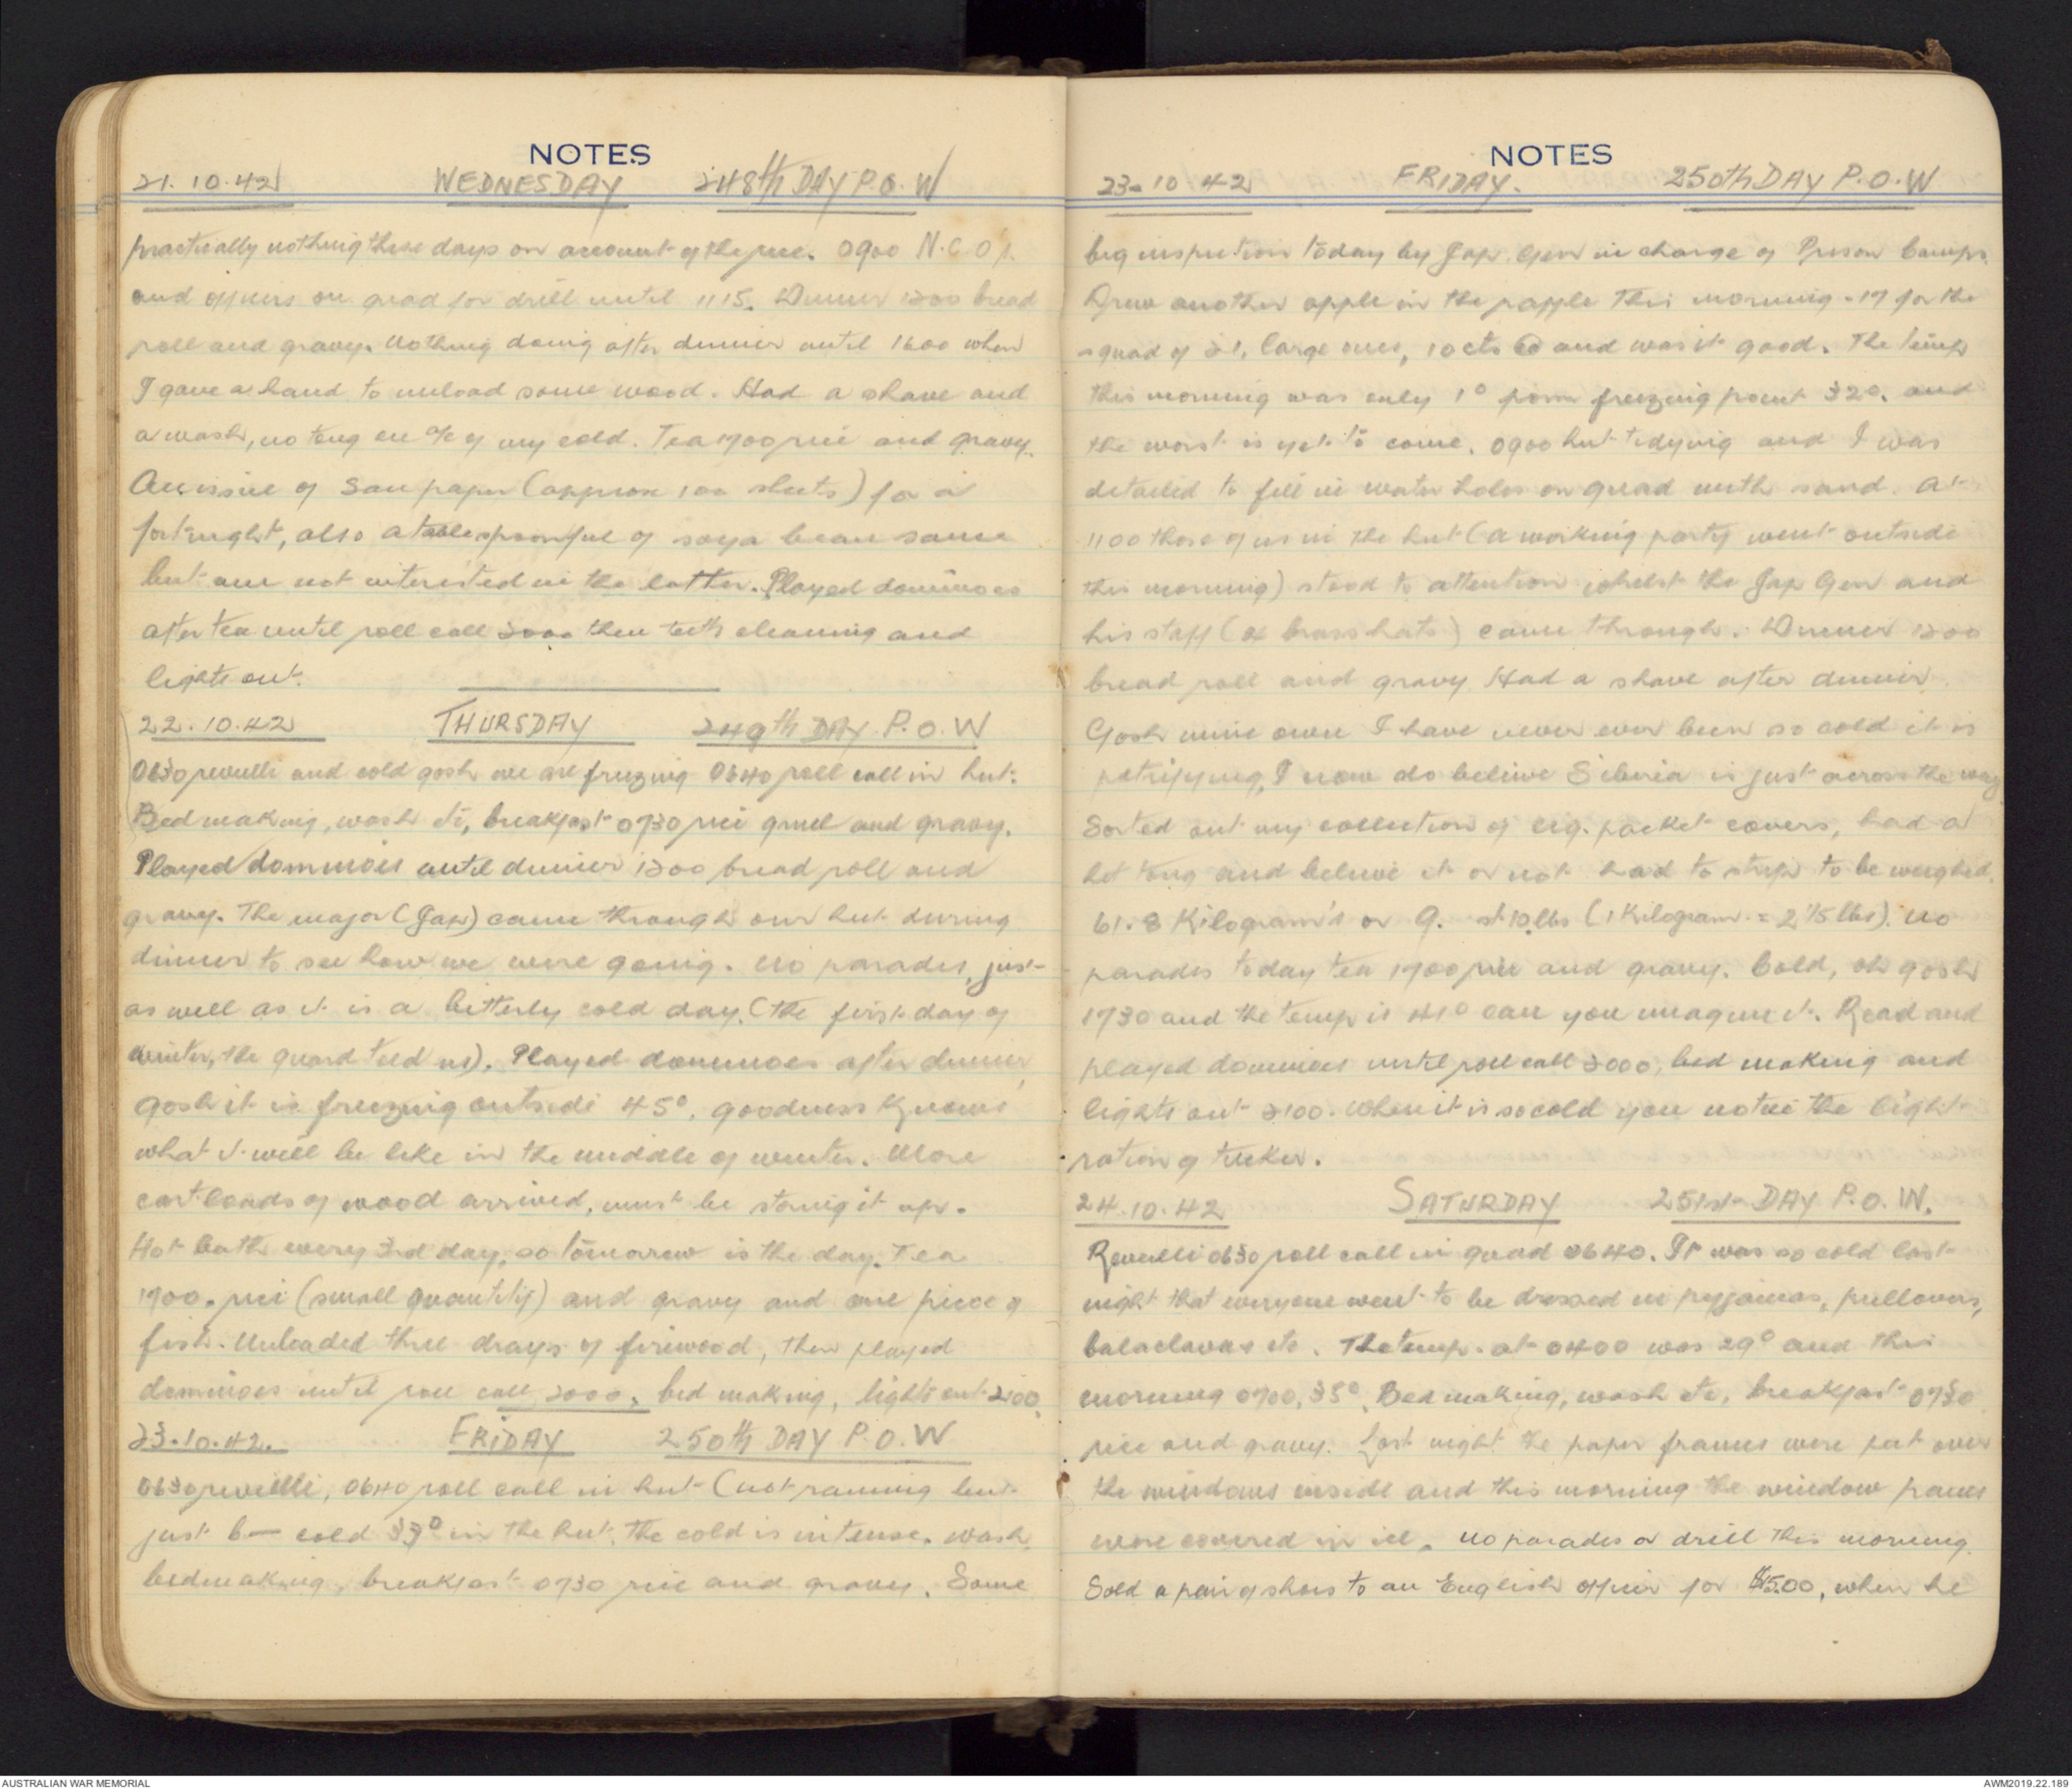 NOTES
21.10.42 WEDNESDAY 248th DAY P.O.W
practically nothing these days on account of the price. 0900 N.C.O's.
and officers on quad for drill until 1115. Dinner 1200 bread
roll and gravy. Nothing doing after dinner until 1600 when
I gave a hand to unload some wood. Had a shave and
a wash, no tong on a/c of my cold. Tea 1700 rice and gravy.
An issue of San paper (approx 100 sheets) for a
fortnight, also a tablespoonful of soya bean sauce
but am not interested in the latter. Played dominoes
after tea until roll call 2000 then teeth cleaning and
lights out.
22.10.42 THURSDAY 249th DAY P.O.W
0630 reveille and cold gosh we are freezing 0640 roll call in hut.
Bed making, wash etc, breakfast 0730 rice gruel and gravy.
Played dominoes until dinner 1200 bread roll and
gravy. The major (Jap) came through our hut during
dinner to see how we were going. No parades, just
as well as it is a bitterly cold day. (the first day of
winter, the guard told us). Played dominoes after dinner,
gosh it is freezing outside 45°, goodness knows
what it will be like in the middle of winter. More
cart loads of wood arrived, must be storing it up.
Hot bath every 3rd day, so tomorrow is the day. Tea
1700. rice (small quantity) and gravy and one piece of
fish. Unloaded three drays of firewood, then played
dominoes until roll call 2000, bed making, lights out 2100.
23.10.42. FRIDAY 250th DAY P.O.W
0630 reveille, 0640 roll call in hut (not raining but
just b— cold 33° in the hut. the cold is intense. wash,
bedmaking, breakfast 0730 rice and gravy. Some
NOTES
23.10.42 FRIDAY. 250th DAY P.O.W
big inspection today by Jap. Gen in charge of Prison Camps.
Drew another apple in the raffle this morning - 17 for the
squad of 21, large ones, 10 cts and was it good. The temp
this morning was only 1° from freezing point 32°. and
the worst is yet to come. 0900 hut tidying and I was
detailed to fill in water holes on quad with sand. At
1100 those of us in the hut (a working party went outside
this morning) stood to attention whilst the Jap Gen and
his staff (of brass hats) came through. Dinner 1200
bread roll and gravy. Had a shave after dinner.
Gosh mine own I have never ever been so cold it is
petrifying, I now do believe Siberia is just across the way
Sorted out my collection of cig. packet covers, had a
hot tong and believe it or not had to strip to be weighed.
61.8 Kilogram's or 9. st 10 lbs (1 Kilogram = 2 1/5 lbs). No
parades today tea 1700 rice and gravy. Cold, oh gosh
1730 and the temp is 41° can you imagine it. Read and
played dominoes until roll call 2000, bed making and
lights out 2100. When it is so cold you notice the light
ration of tucker.
24.10.42 SATURDAY 251st DAY P.O.W.
Reveille 0630 roll call in quad 0640. It was so cold last
night that everyone went to be dressed in pyjamas, pullovers,
balaclavas etc. The temp. at 0400 was 29° and this
morning 0700, 35°. Bed making, wash etc, breakfast 0730
rice and gravy. Last night the paper frames were put over
the windows inside and this morning the window panes
were covered in ice. No parades or drill this morning.
Sold a pair of shoes to an English officer for $15.00, when he
AUSTRALIAN WAR MEMORIAL
AWM2019.22.189